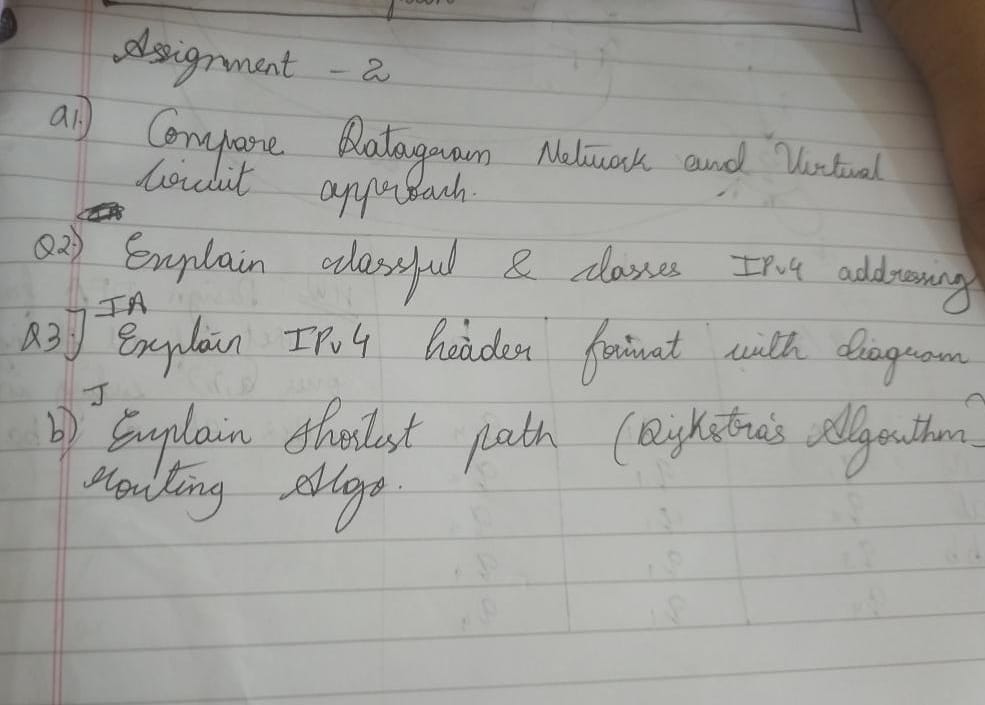 Assignment - 2
Q1.) Compare Datagram Network and Virtual
Circuit approach.
Q2.) Explain classful & classes IPv4 addressing
IA
Q3.] Explain IPv4 header format with diagram
J
b) Explain shortest path (Dijkstra's Algorithm
routing Algo.